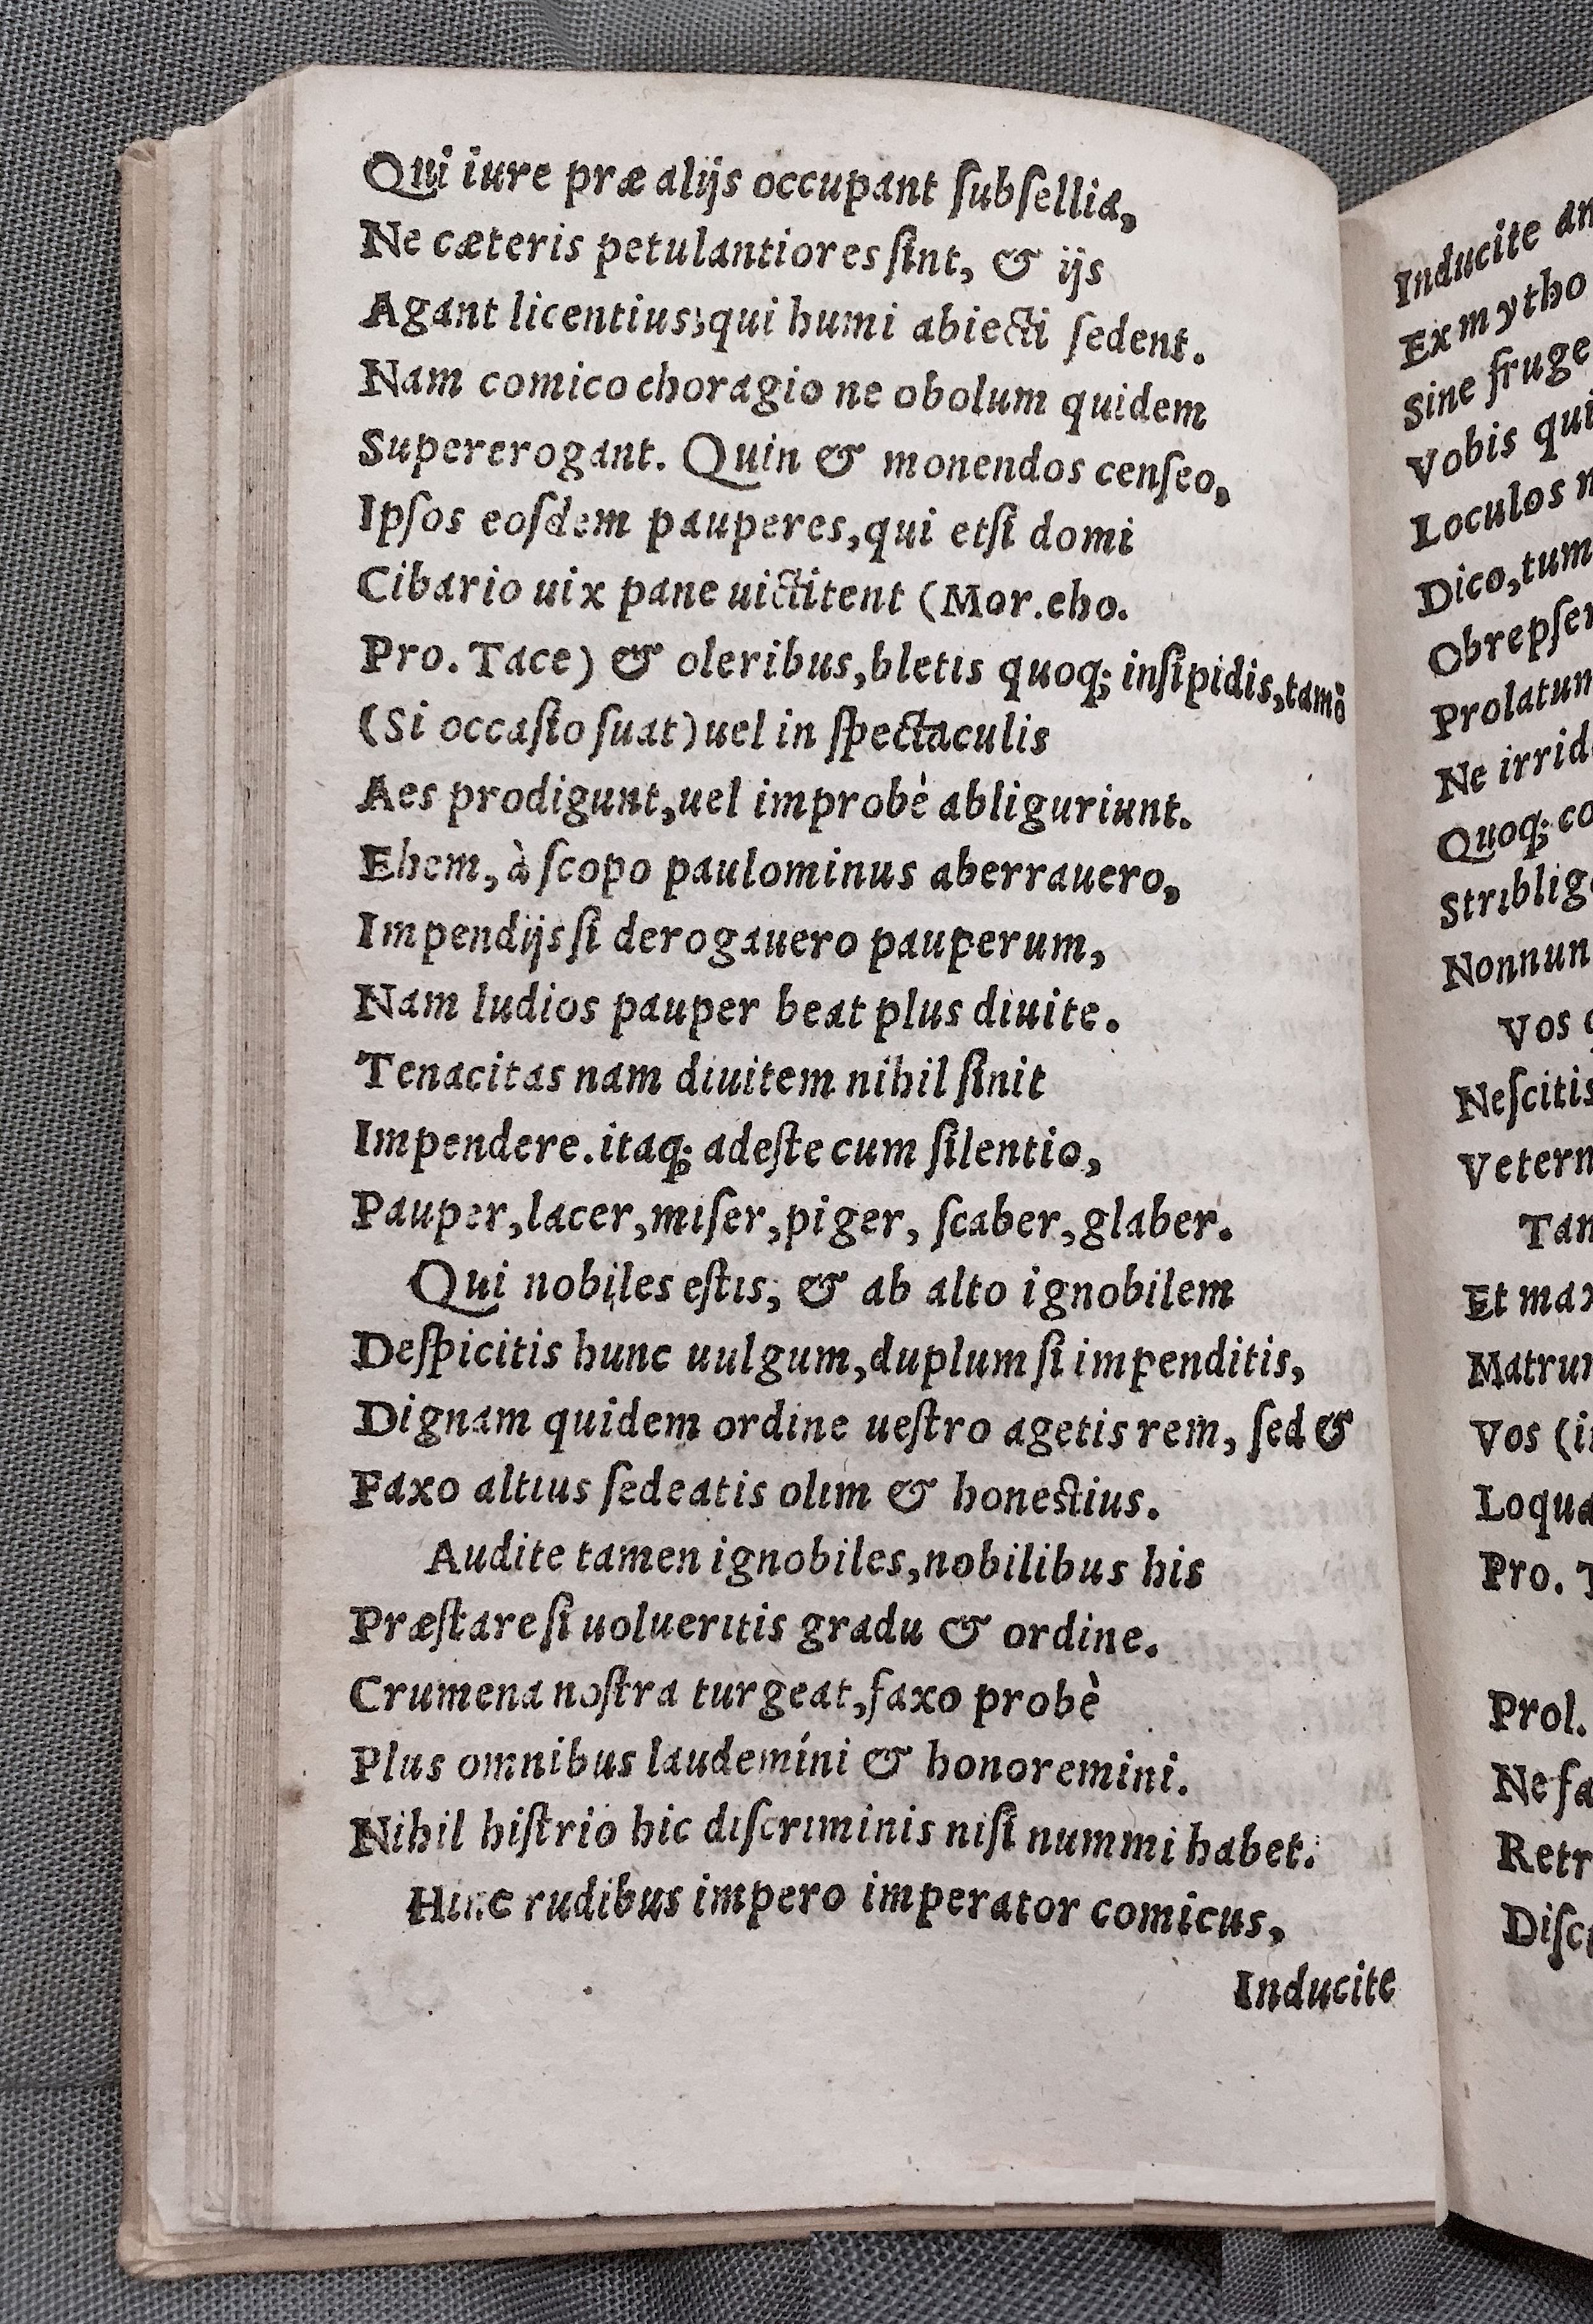 Qui iure præ alijs occupant ſubſellia,
Ne cæteris petulantiores ſint, & ijs
Agant licentius; qui humi abiecti ſedent.
Nam comico choragio ne obolum quidem
Supererogant. Quin & monendos cenſeo,
Ipſos eoſdem pauperes, qui etſi domi
Cibario uix pane uictitent (Mor. eho.
Pro. Tace) & oleribus, bletis quoq; inſipidis, tamē
(Si occaſio ſuat) uel in ſpectaculis
Aes prodigunt, uel improbè abliguriunt.
Ehem, à ſcopo paulominus aberrauero,
Impendijs ſi derogauero pauperum,
Nam ludios pauper beat plus diuite.
Tenacitas nam diuitem nihil ſinit
Impendere. itaq; adeſte cum ſilentio,
Pauper, lacer, miſer, piger, ſcaber, glaber.
Qui nobiles eſtis; & ab alto ignobilem
Deſpicitis hunc uulgum, duplum ſi impenditis,
Dignam quidem ordine ueſtro agetis rem, ſed &
Faxo altius ſedeatis olim & honeſtius.
Audite tamen ignobiles, nobilibus his
Præſtare ſi uolueritis gradu & ordine.
Crumena noſtra turgeat, faxo probè
Plus omnibus laudemini & honoremini.
Nihil hiſtrio hic diſcriminis niſi nummi habet.
Hinc rudibus impero imperator comicus,
Inducite
Inducite
Ex mytho
Sine fruge
Vobis
Loculos
Dico, tum
Prolatun
Ne
Quoq;
Nonnun
Vos
Neſcitis
Veter
Et
Vos
Pro.
Prol.
Ne